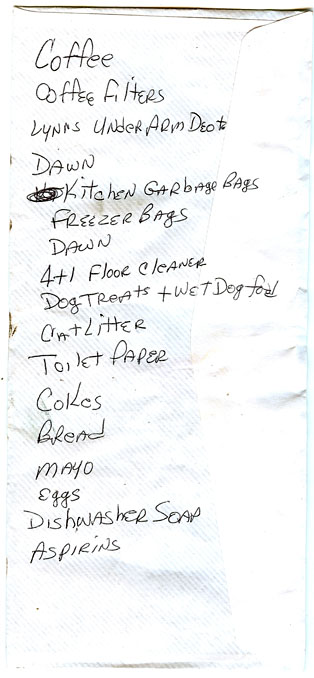 Coffee
Coffee Filters
Lynns Under Arm Deot
Dawn
Kitchen Garbage Bags
Freezer Bags
Dawn
4+1 Floor Cleaner
Dog Treats + Wet Dog food
Cat Litter
Toilet Paper
Cokes
Bread
Mayo
Eggs
Dishwasher Soap
Aspirins